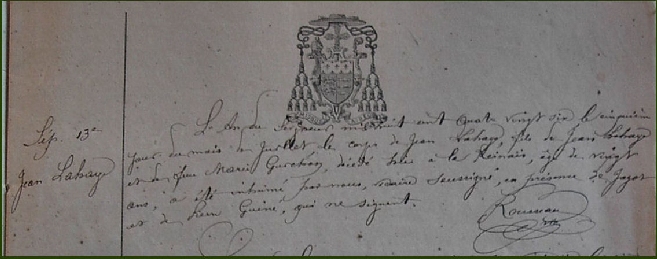 Sép. 13e
Jean Lahay
L'An du Seigneur mil huit cent quatre vingt six le cinquième
jour du mois de Juillet le corps de Jean Lahaye, fils de Jean Lahaye
et de feue Marie décédé hier à la âgé de vingt
ans, a été inhumé par nous, vicaire soussigné, en présence de
et de Pierre Guérin, qui ne signent.
Rousseau